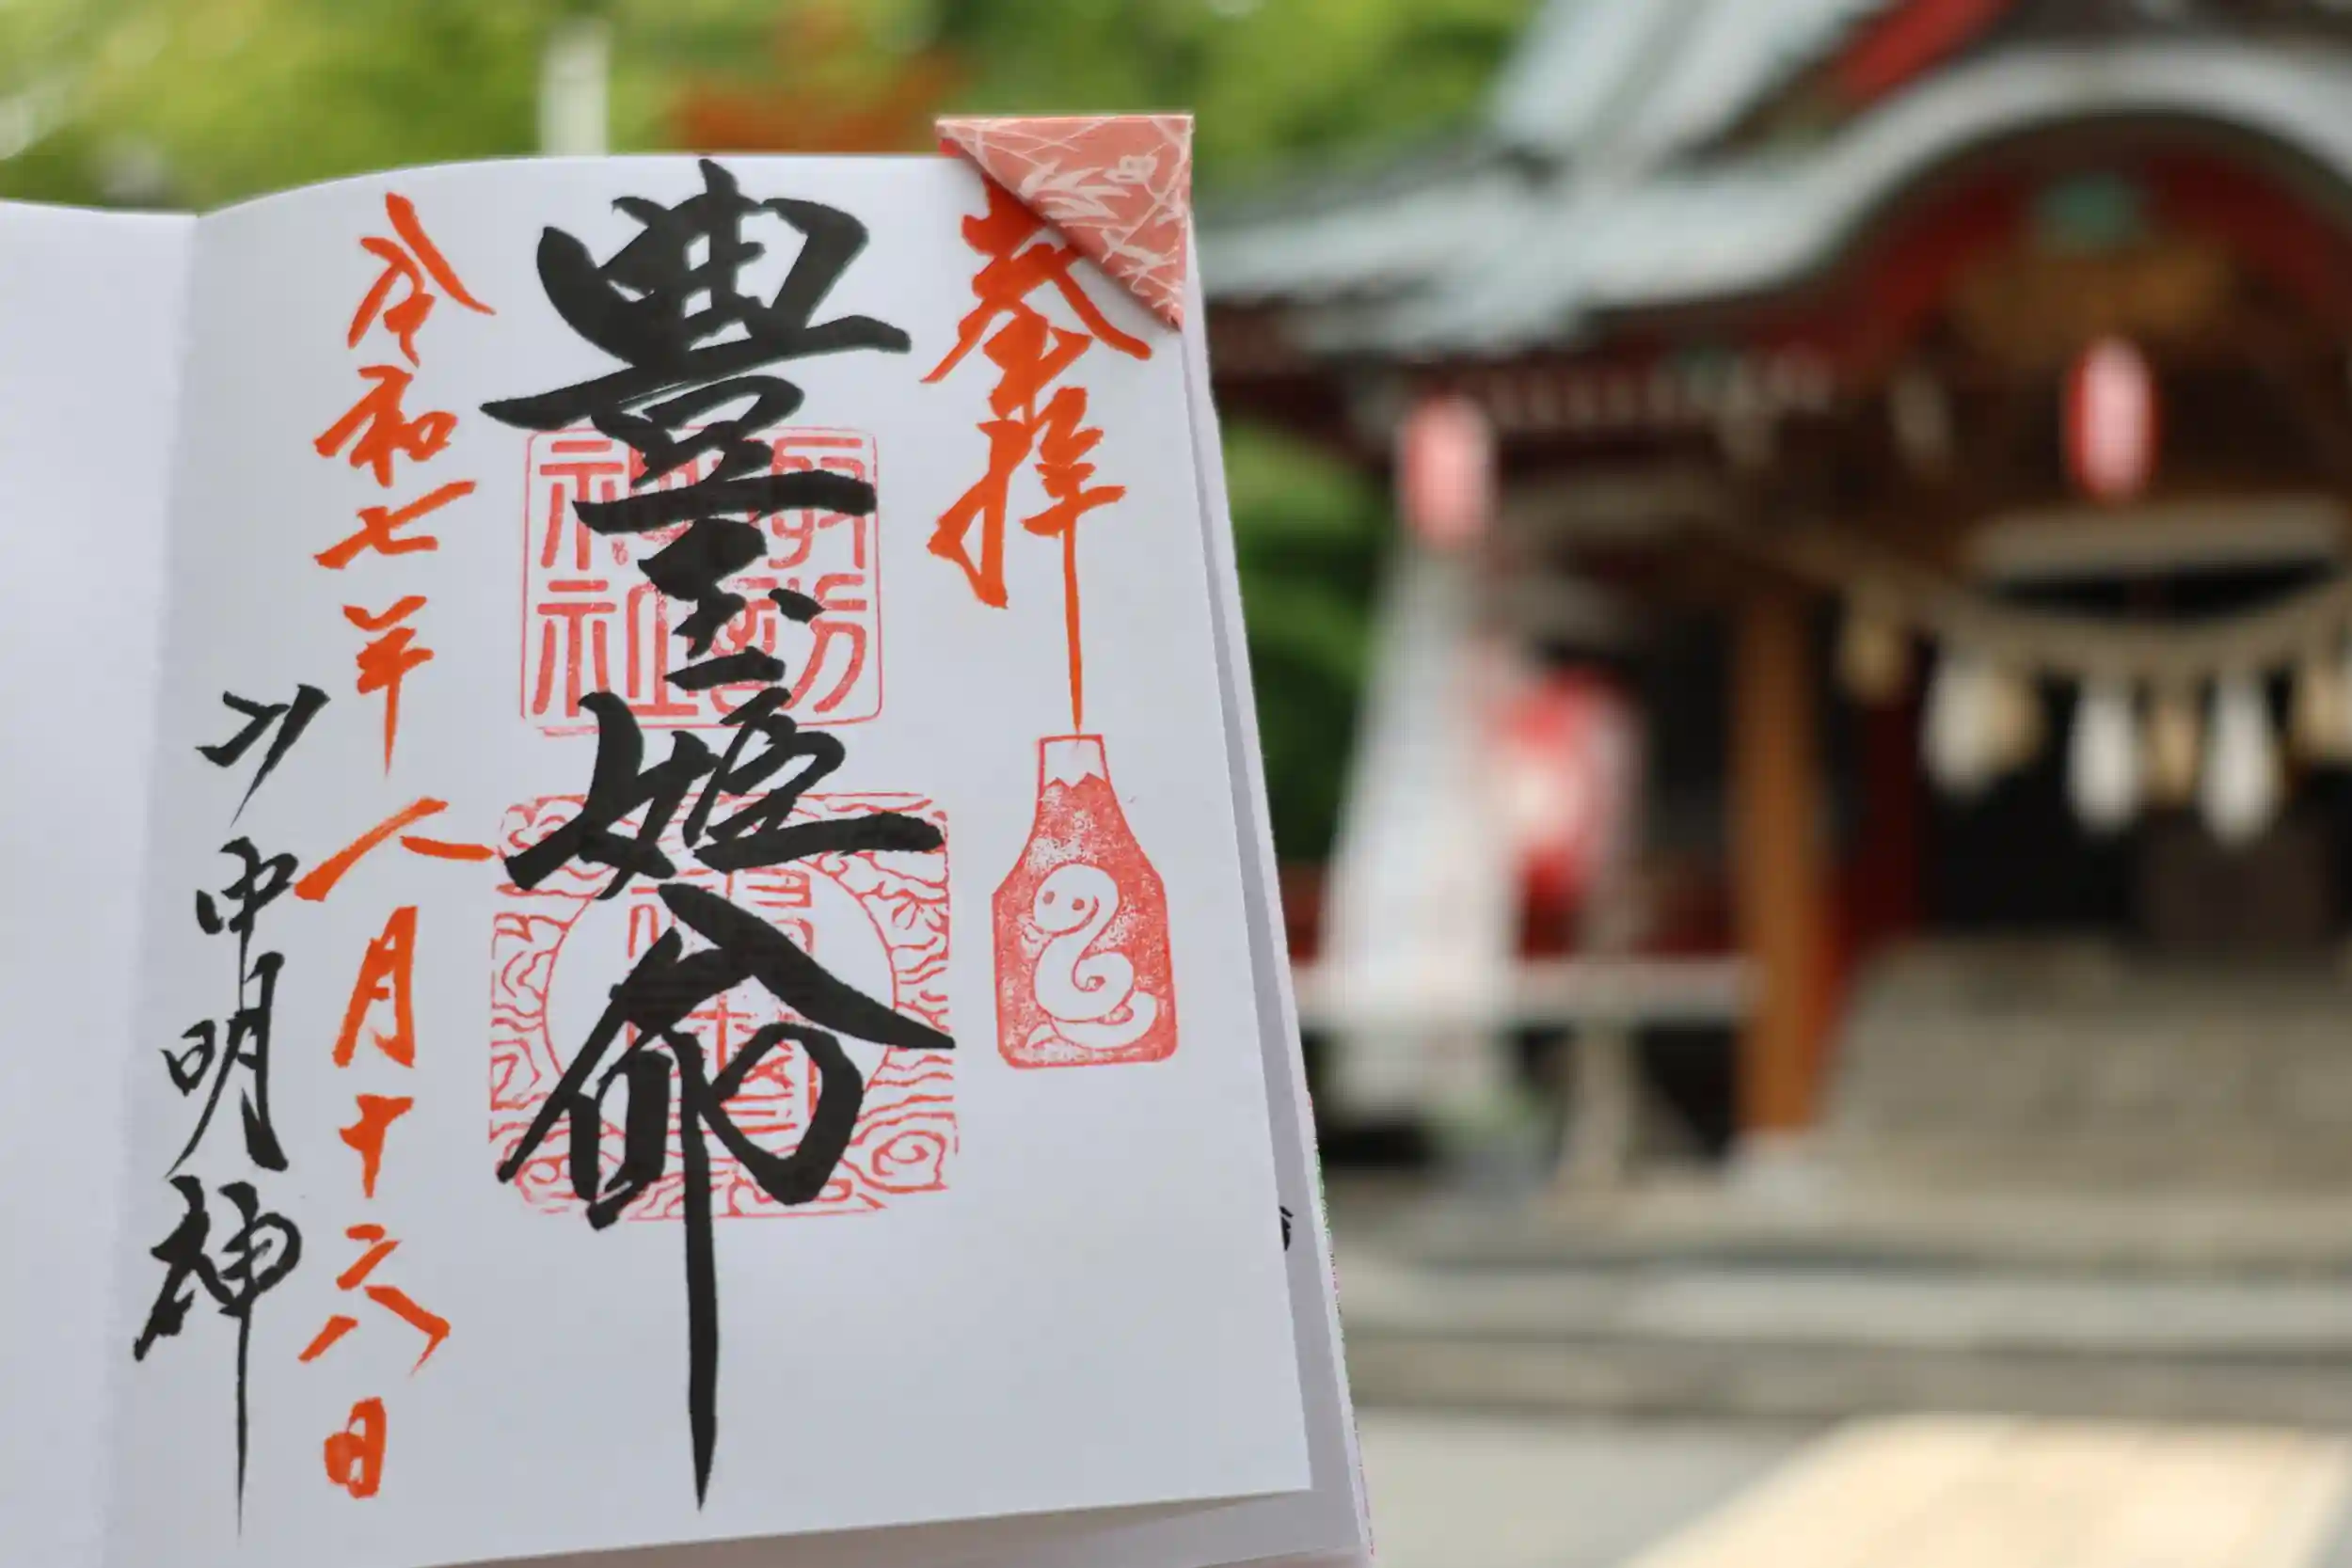 奉拝
豊玉姫命
諏訪
神社
令和七年八月十六日
山中明神